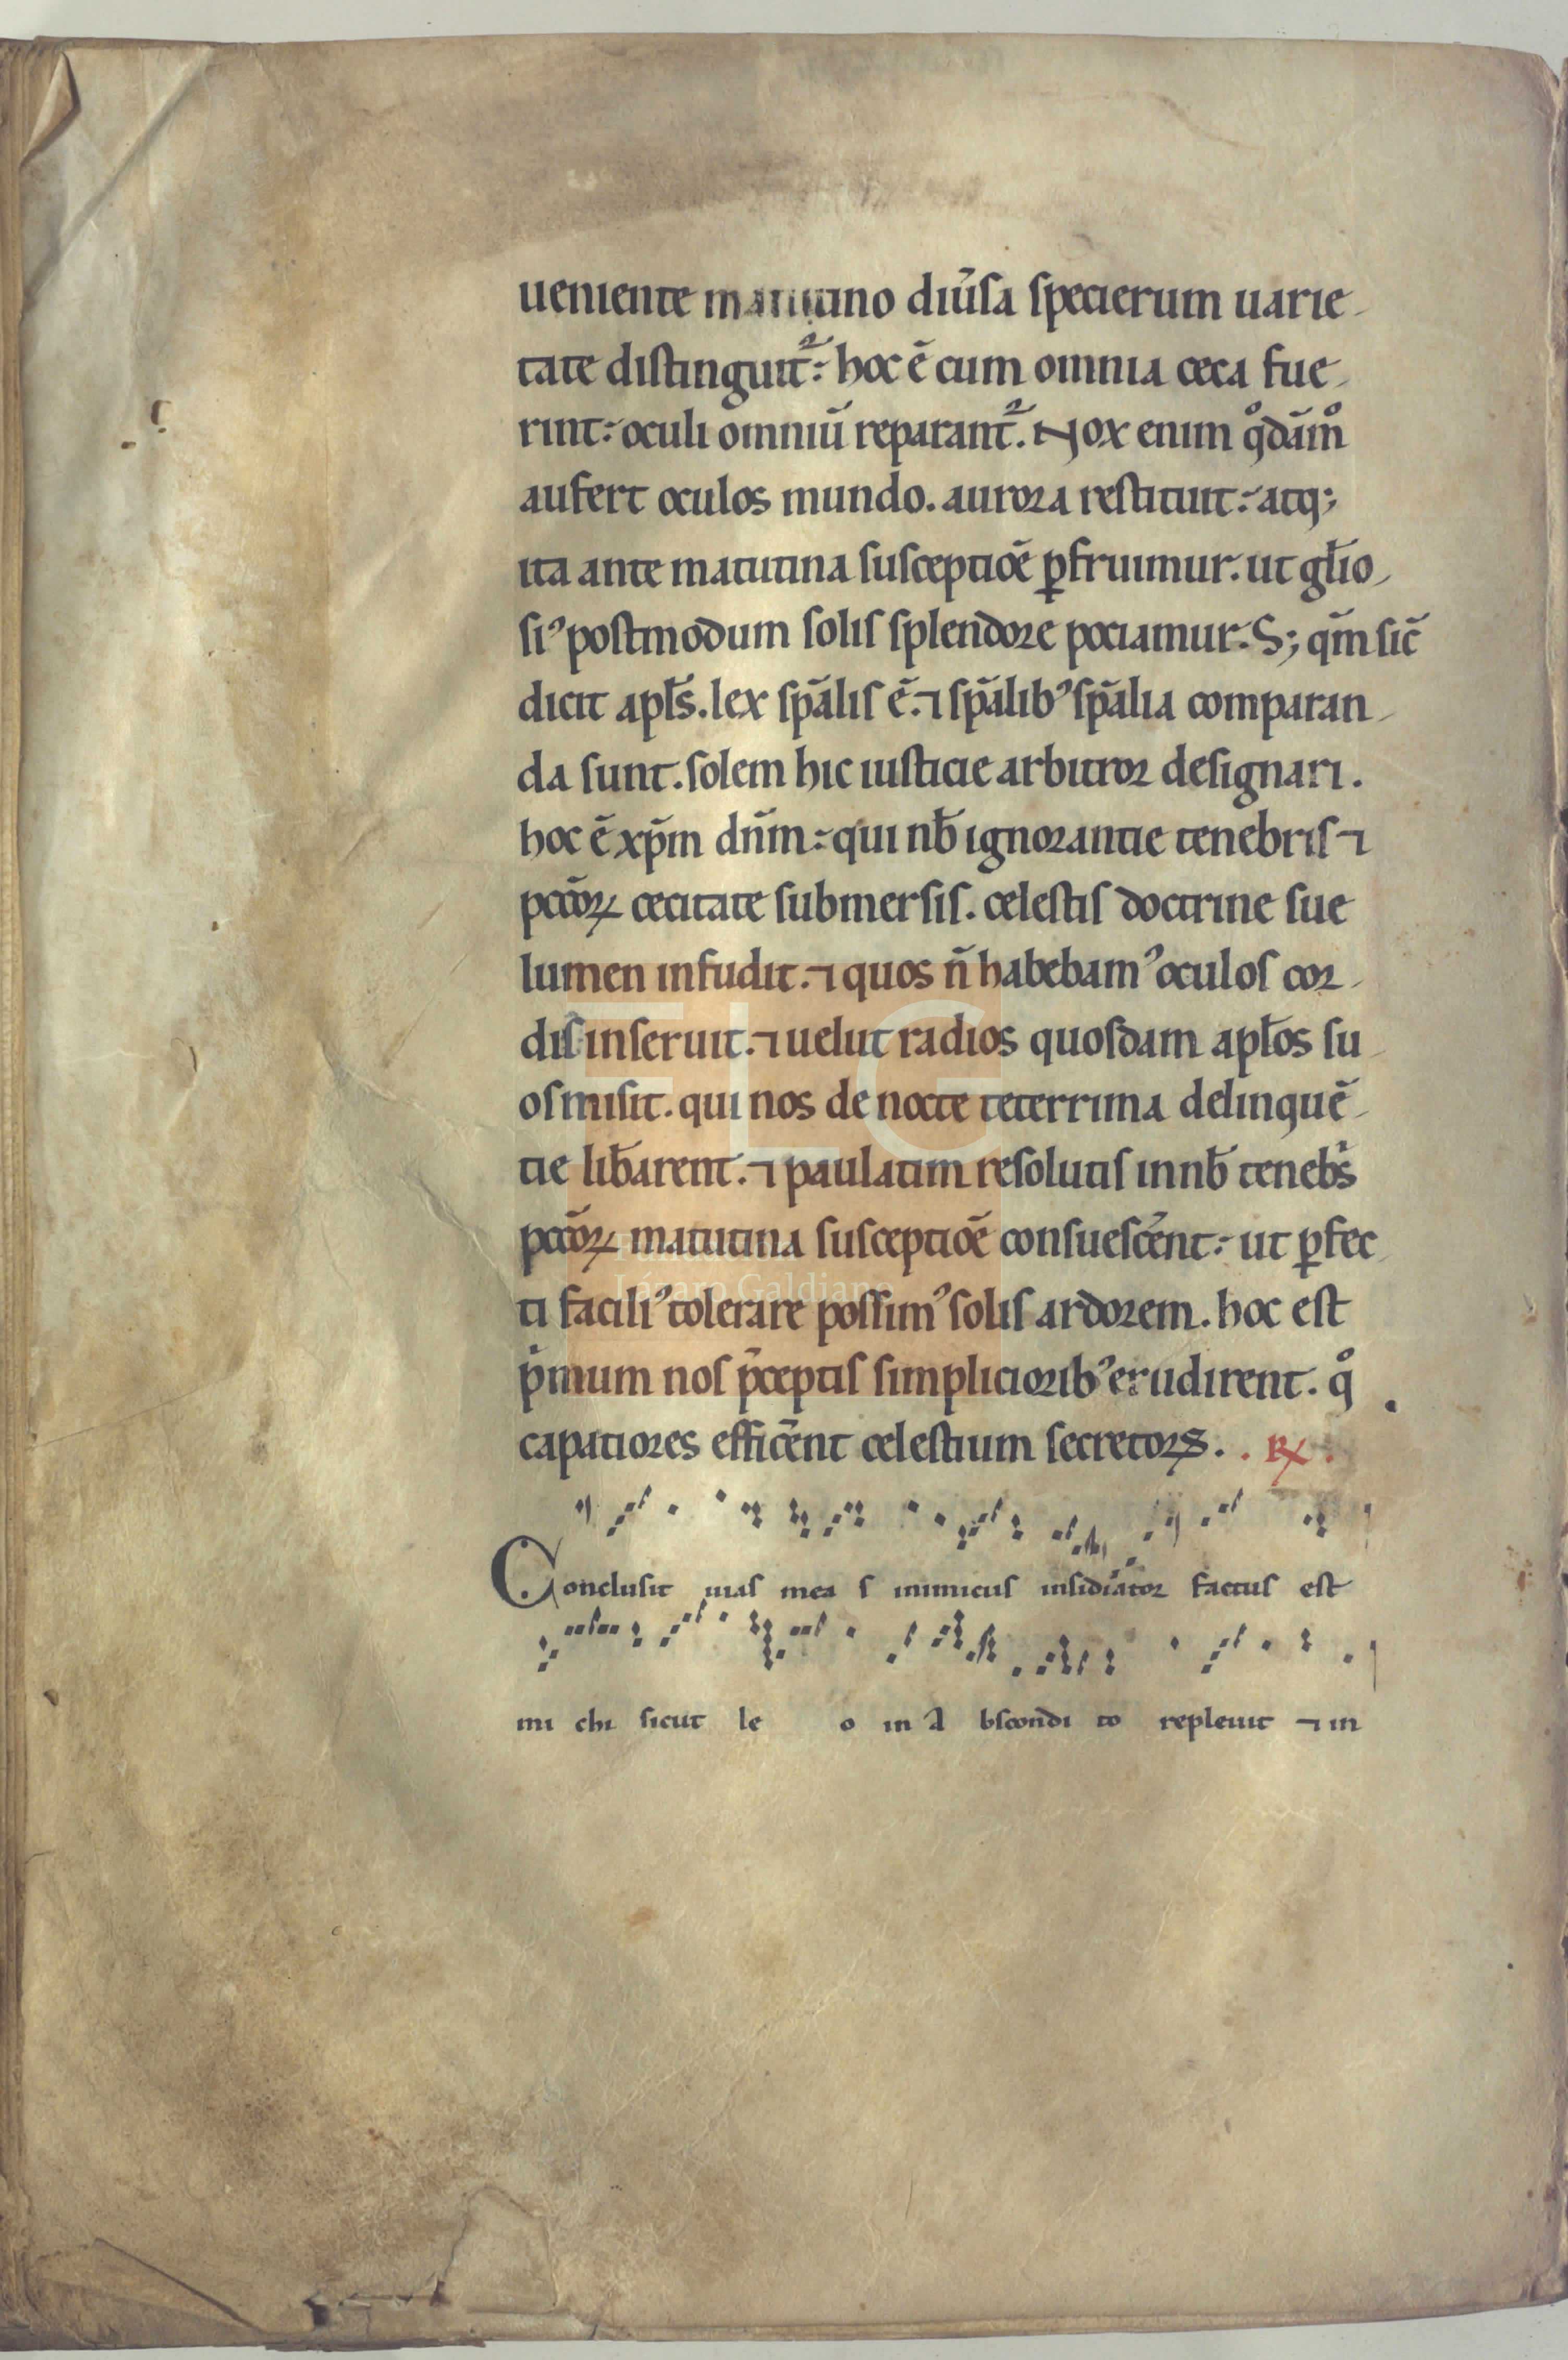 ueniente matutino diu̾sa specierum uarie-
tate distinguit᷑: hoc ē cum omnia ceca fue-
rint: oculi omniū reparant᷑. Nox enim qͦdām̊
aufert oculos mundo. aurora restituit: atq;
ita ante matutina susceptiōē ꝑfruimur. ut gl̄io-
siꝰ postmodum solis splendore pociamur. S; qm̄ sic̄
dicit apl̄s. lex sp̄alis ē. ⁊ sp̄alibꝰ sp̄alia comparan-
da sunt. solem hic iusticie arbitror designari.
hoc ē xp̄m dn̄m: qui nb̄ ignorantie tenebris ⁊
pccōꝝ cecitate submersis. celestis doctrine sue
lumen infudit. ⁊ quos n̄ habebamꝰ oculos cor-
dis inseruit. ⁊ uelut radios quosdam apl̄os su-
os misit. qui nos de nocte teterrima delinquē-
tie lib̄arent. ⁊ paulatim resolutis in nb̄ tenebͥs
pccōꝝ matutina susceptiōē consuesc̄ent: ut ꝑfec-
ti faciliꝰ tolerare possimꝰ solis ardorem. hoc est
pͥmum nos p̄ceptis simplicioribꝰ erudirent. qͦ
capatiores effic̄ent celestium secretorꝝ. . ℞ .
Conclusit uias mea s inimicus insidiator factus est
mi chi sicut le o in a bscondi to repleuit ⁊ in
FLG
Fundación
Lázaro Galdiano